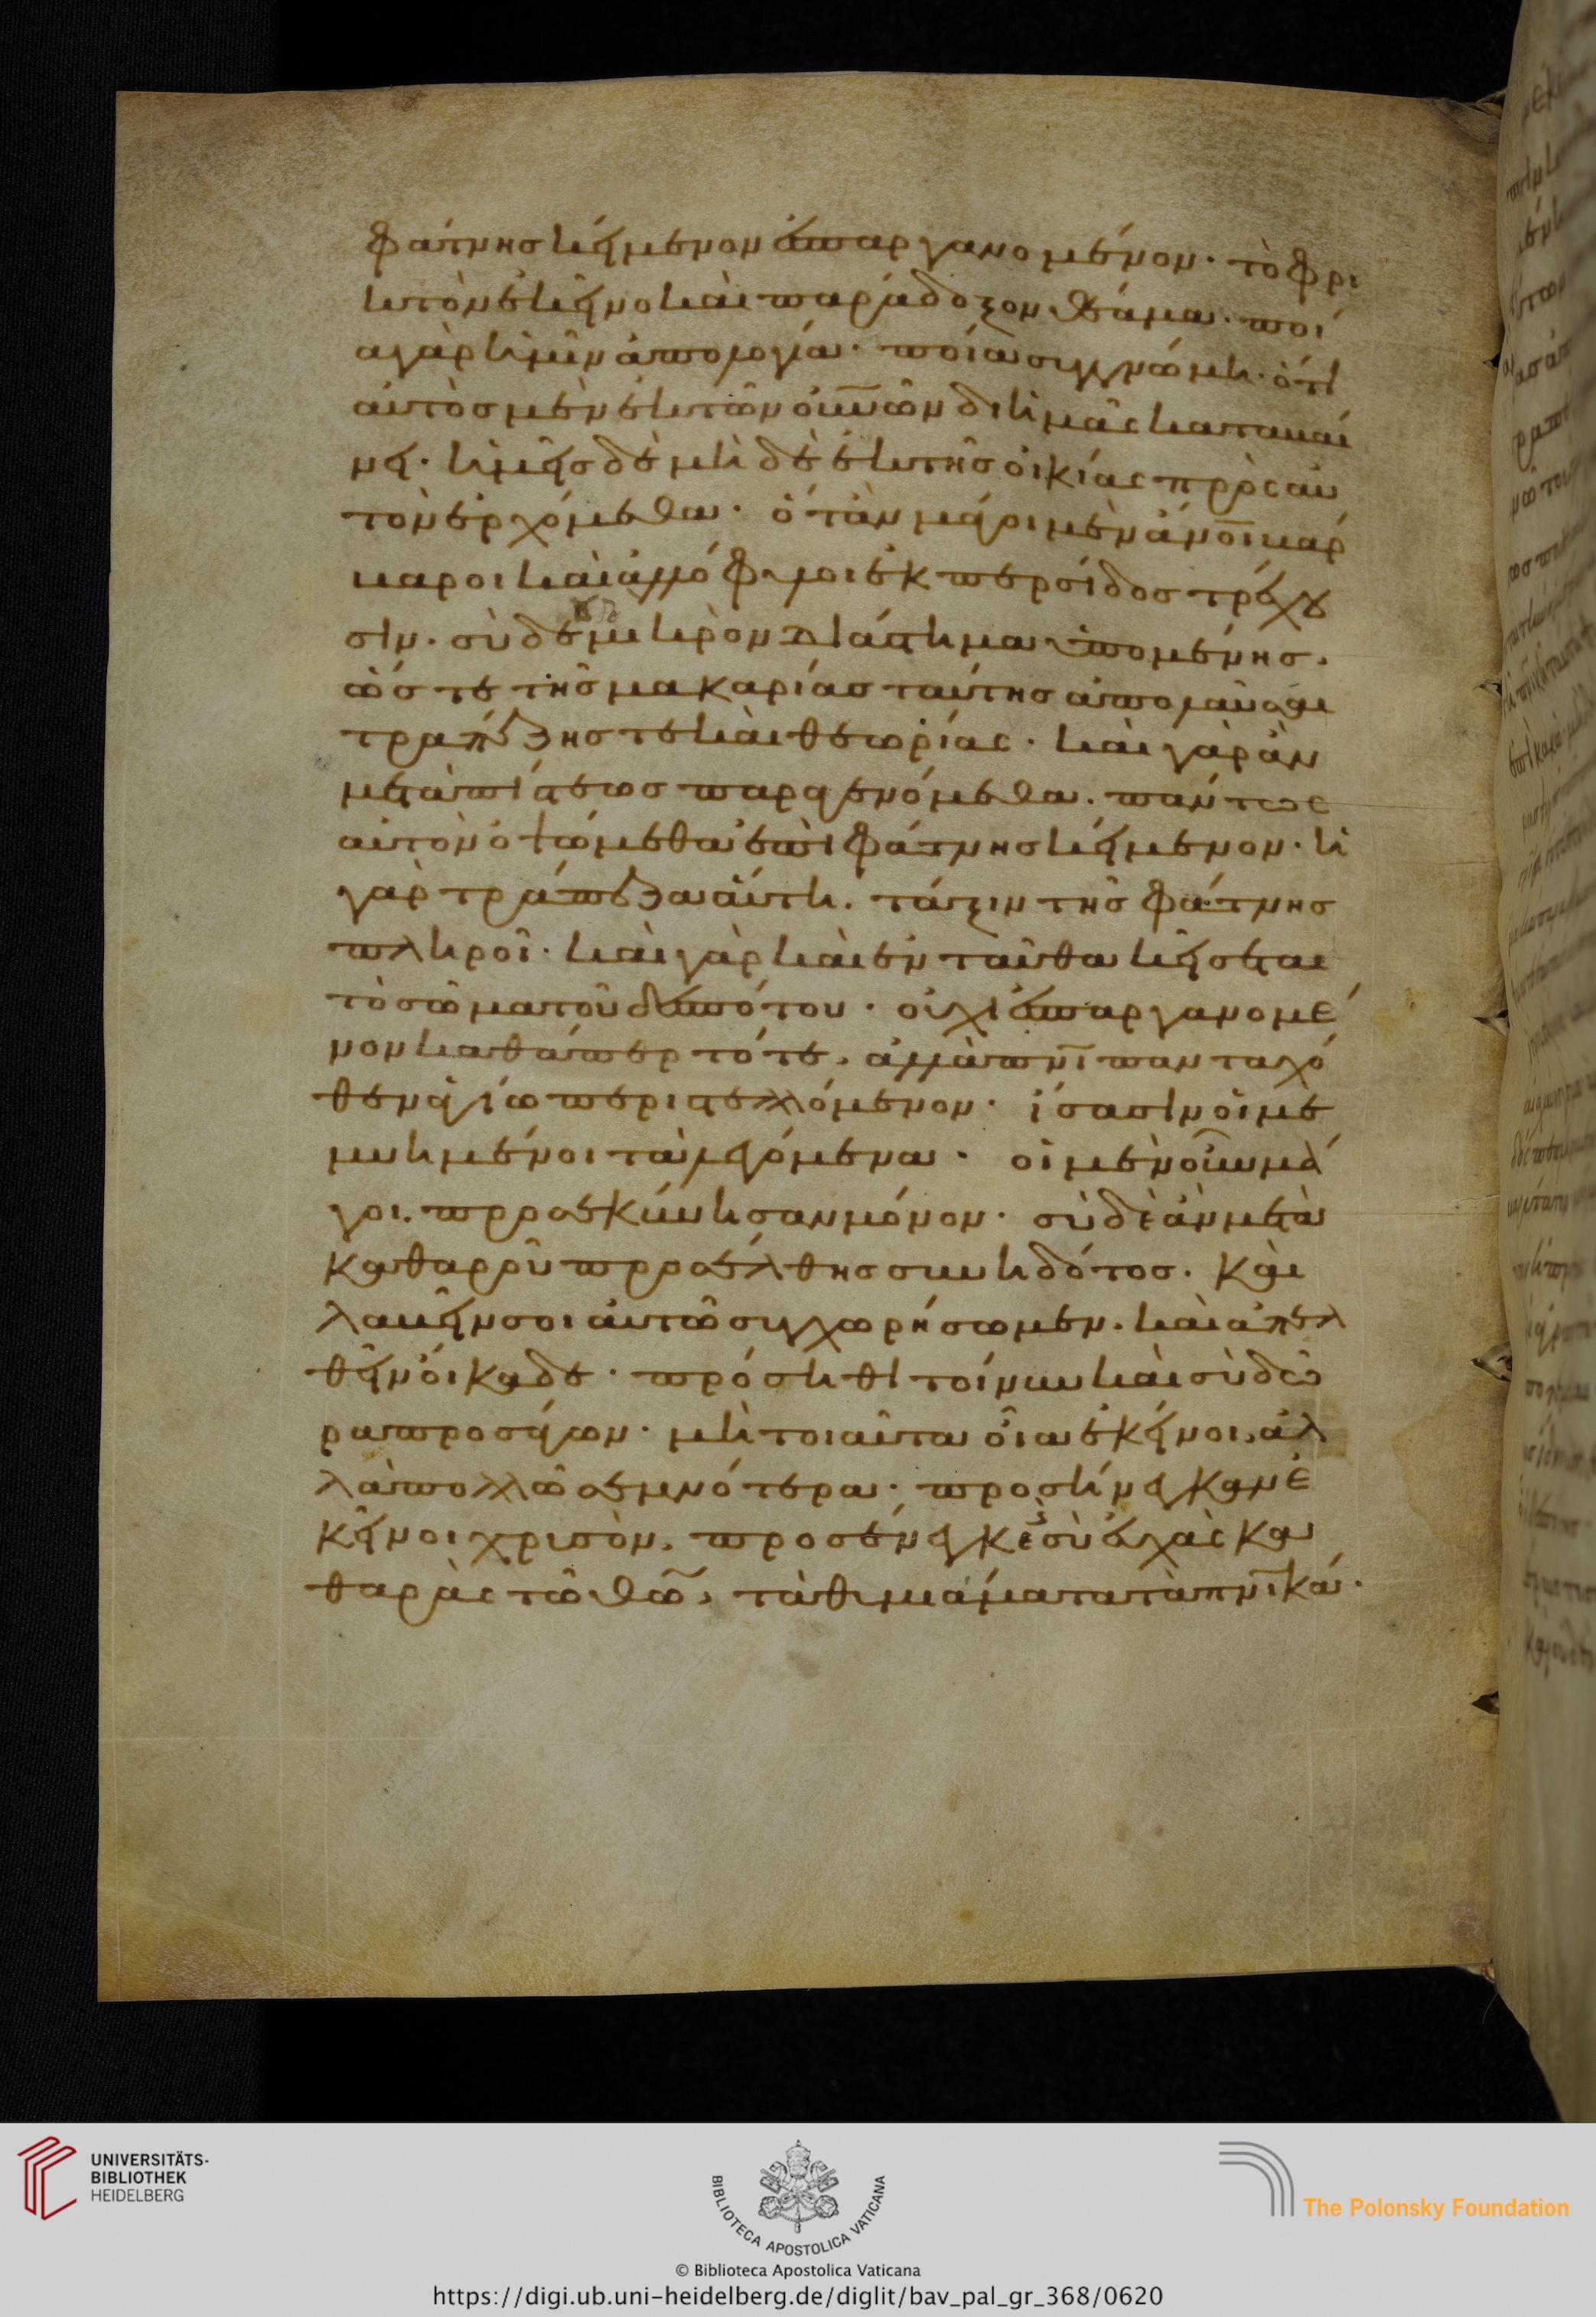 φάτνης κείμενον ἐσπαργανομένον· τὸ φρι
κτὸν ἐκεῖνο καὶ παράδοξον θέαμα· ποί
α γὰρ ἡμῖν ἀπολογία· ποία συγγνώμη· ὅτι
αὐτὸς μὲν ἐκ τῶν οὐν̅ῶν δι ἡμᾶς καταβαί
νει· ἡμεῖς δὲ μὴ δὲ ἐκ τῆς οἰκίας πρὸς αὐ
τὸν ἐρχόμεθα· ὅτὰν μάγοι μὲν ἄν̅οι βάρ
βαροι καὶ ἀλλόφυλοι ἐκ περσίδος τρέχου
σιν· σὺ δὲ μικρὸν διάστημα ὑπομένης·
ὥστε τῆς μακαρίας ταύτης ἀπολαῦσαι
τραπέζης τε καὶ θεωρίας· καὶ γὰρ ἂν
μετὰ πίστεως παραγενόμεθα· πάντως
αὐτὸν ὀψώμεθα ἐπὶ φάτνης κείμενον· ἡ
γὰρ τράπεζα αὕτη· τάξιν τῆς φάτνης
πληροῖ· καὶ γὰρ καὶ ἐνταῦθα κείσεται
τὸ σῶμα τοῦ δεσπότου· οὐχὶ ἐσπαργανομέ
νον καθάπερ τότε, ἀλλὰ πν̅ι πανταχό
θεν ἁγίω περιστελλόμενον· ἴσασιν οἱ με
μυημένοι τὰ λεγόμενα· οἱ μὲν οὖν μά
γοι· προσεκύνησαν μόνον· σὺ δὲ ἂν μετὰ
καθαροῦ προσέλθης συνηδότος· καὶ
λαβεῖν σοι αὐτῶ συγχωρήσωμεν· καὶ ἀπελ
θεῖν οἴκαδε· πρόσηθι τοίνυν καὶ σὺ δῶ
ρα προσάγων· μὴ τοιαῦτα οἷα ἐκεῖνοι, ἀλ
λὰ πολλῶ σεμνότερα· προσήνεγκαν ἐ
κεῖνοι χρυσὸν, προσένεγκε σὺ εὐχὰς κα
θαρὰς τῶ θῶ̅, τὰ θυμιάματα τὰ πν̅ικά·
UNIVERSITÄTS-
BIBLIOTHEK
HEIDELBERG
BIBLIOTECA APOSTOLICA VATICANA
The Polonsky Foundation
© Biblioteca Apostolica Vaticana
https://digi.ub.uni-heidelberg.de/diglit/bav_pal_gr_368/0620